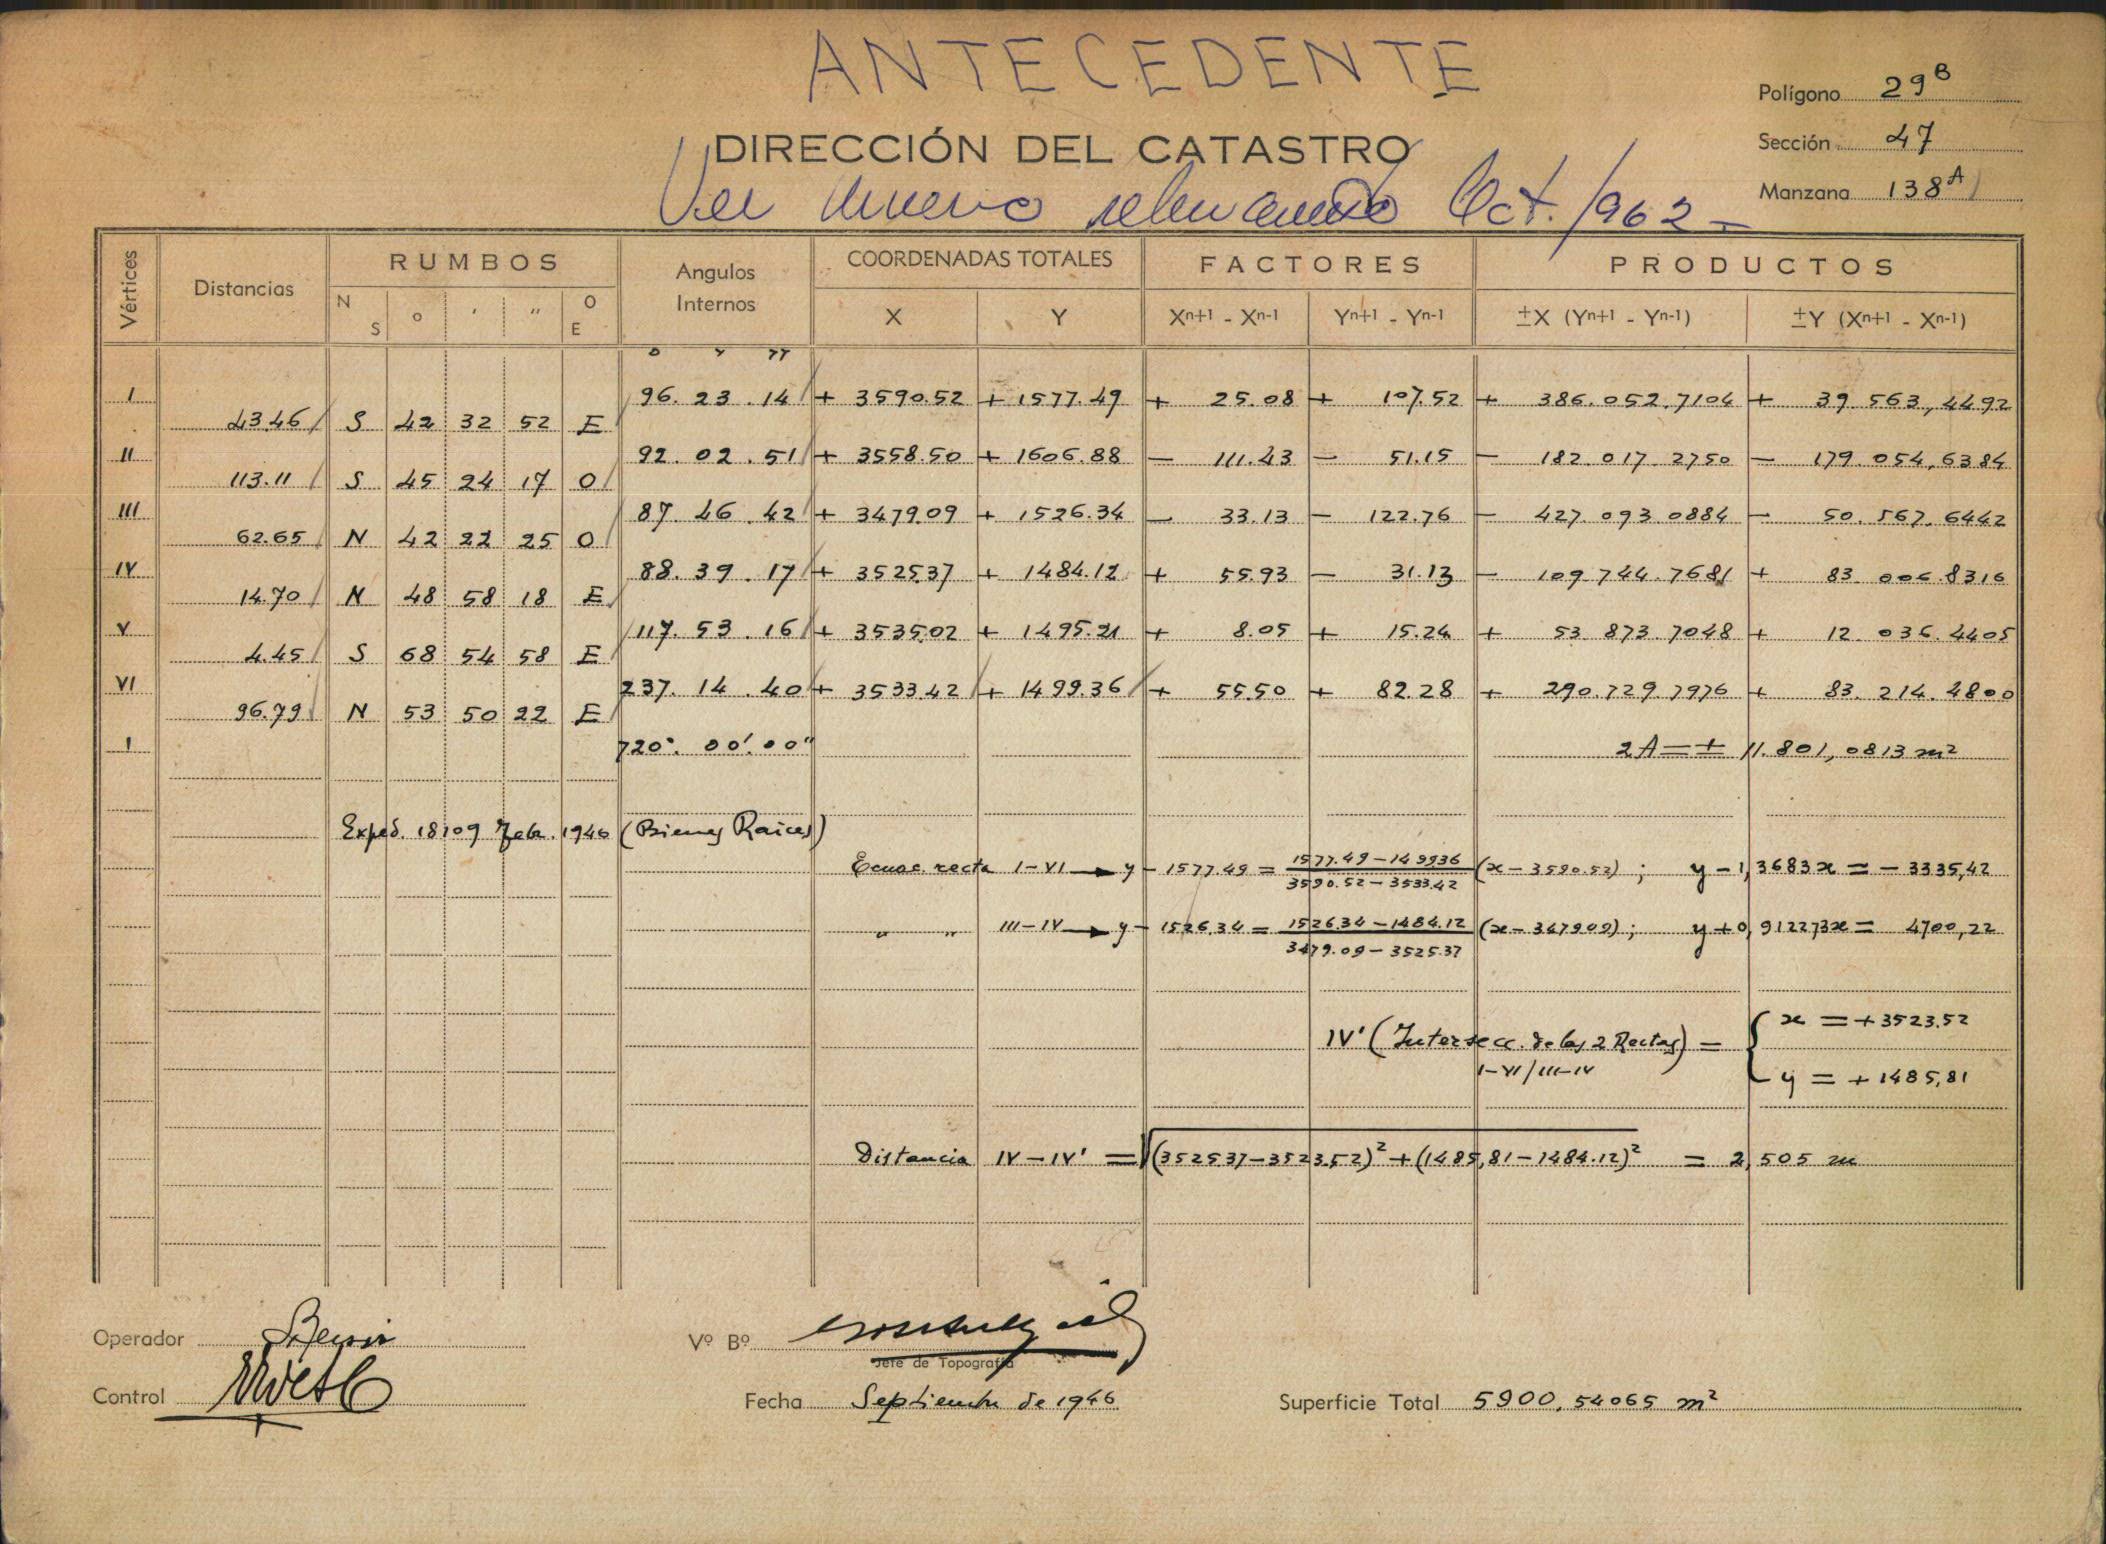 ANTECEDENTE
Polígono 29B
DIRECCIÓN DEL CATASTRO
Sección 47
Ver nuevo relevamiento Oct./962-
Manzana 138A
Vértices Distancias RUMBOS Angulos Internos COORDENADAS TOTALES FACTORES PRODUCTOS
N S o ' " O E X Y Xn+1 - Xn-1 Yn+1 - Yn-1 ±X (Yn+1 - Yn-1) ±Y (Xn+1 - Xn-1)
I 96. 23. 14 + 3590.52 + 1577.49 + 25.08 + 107.52 + 386.052.7104 + 39 563,4492
43.46 S 42 32 52 E
II 92. 02. 51 + 3558.50 + 1606.88 - 111.43 - 51.15 - 182.017.2750 - 179.054,6384
113.11 S 45 24 17 O
III 87. 46. 42 + 3479.09 + 1526.34 - 33.13 - 122.76 - 427.093.0884 - 50.567.6442
62.65 N 42 22 25 O
IV 88. 39. 17 + 3525.37 + 1484.12 + 55.93 - 31.13 - 109.744.7681 + 83.006.8316
14.70 N 48 58 18 E
V 117. 53. 16 + 3535.02 + 1495.21 + 8.05 + 15.24 + 53 873.7048 + 12.036.4405
4.45 S 68 54 58 E
VI 237. 14. 40 + 3533.42 + 1499.36 + 55.50 + 82.28 + 290.729.7976 + 83.214.4800
96.79 N 53 50 22 E
I 720°. 00'.00" 2A = ± 11.801,0813 m²
Exped. 18109 Febr. 1946 (Bienes Raices)
Ecuac. recta I-VI → y - 1577.49 = 1577.49-1499.36 / 3590.52-3533.42 (x-3590.52) ; y - 1,3683x = - 3335,42
" " III-IV → y - 1526.34 = 1526.34-1484.12 / 3479.09-3525.37 (x-3479.09) ; y + 0,912273x = 4700,22
IV' (Intersecc. de las 2 Rectas) = { x = +3523.52
I-VI/III-IV y = + 1485,81
Distancia IV-IV' = √(3525.37-3523.52)² + (1485,81-1484.12)² = 2,505 m
Operador Vº Bº
Jefe de Topografía
Control Fecha Septiembre de 1946 Superficie Total 5900.54065 m²